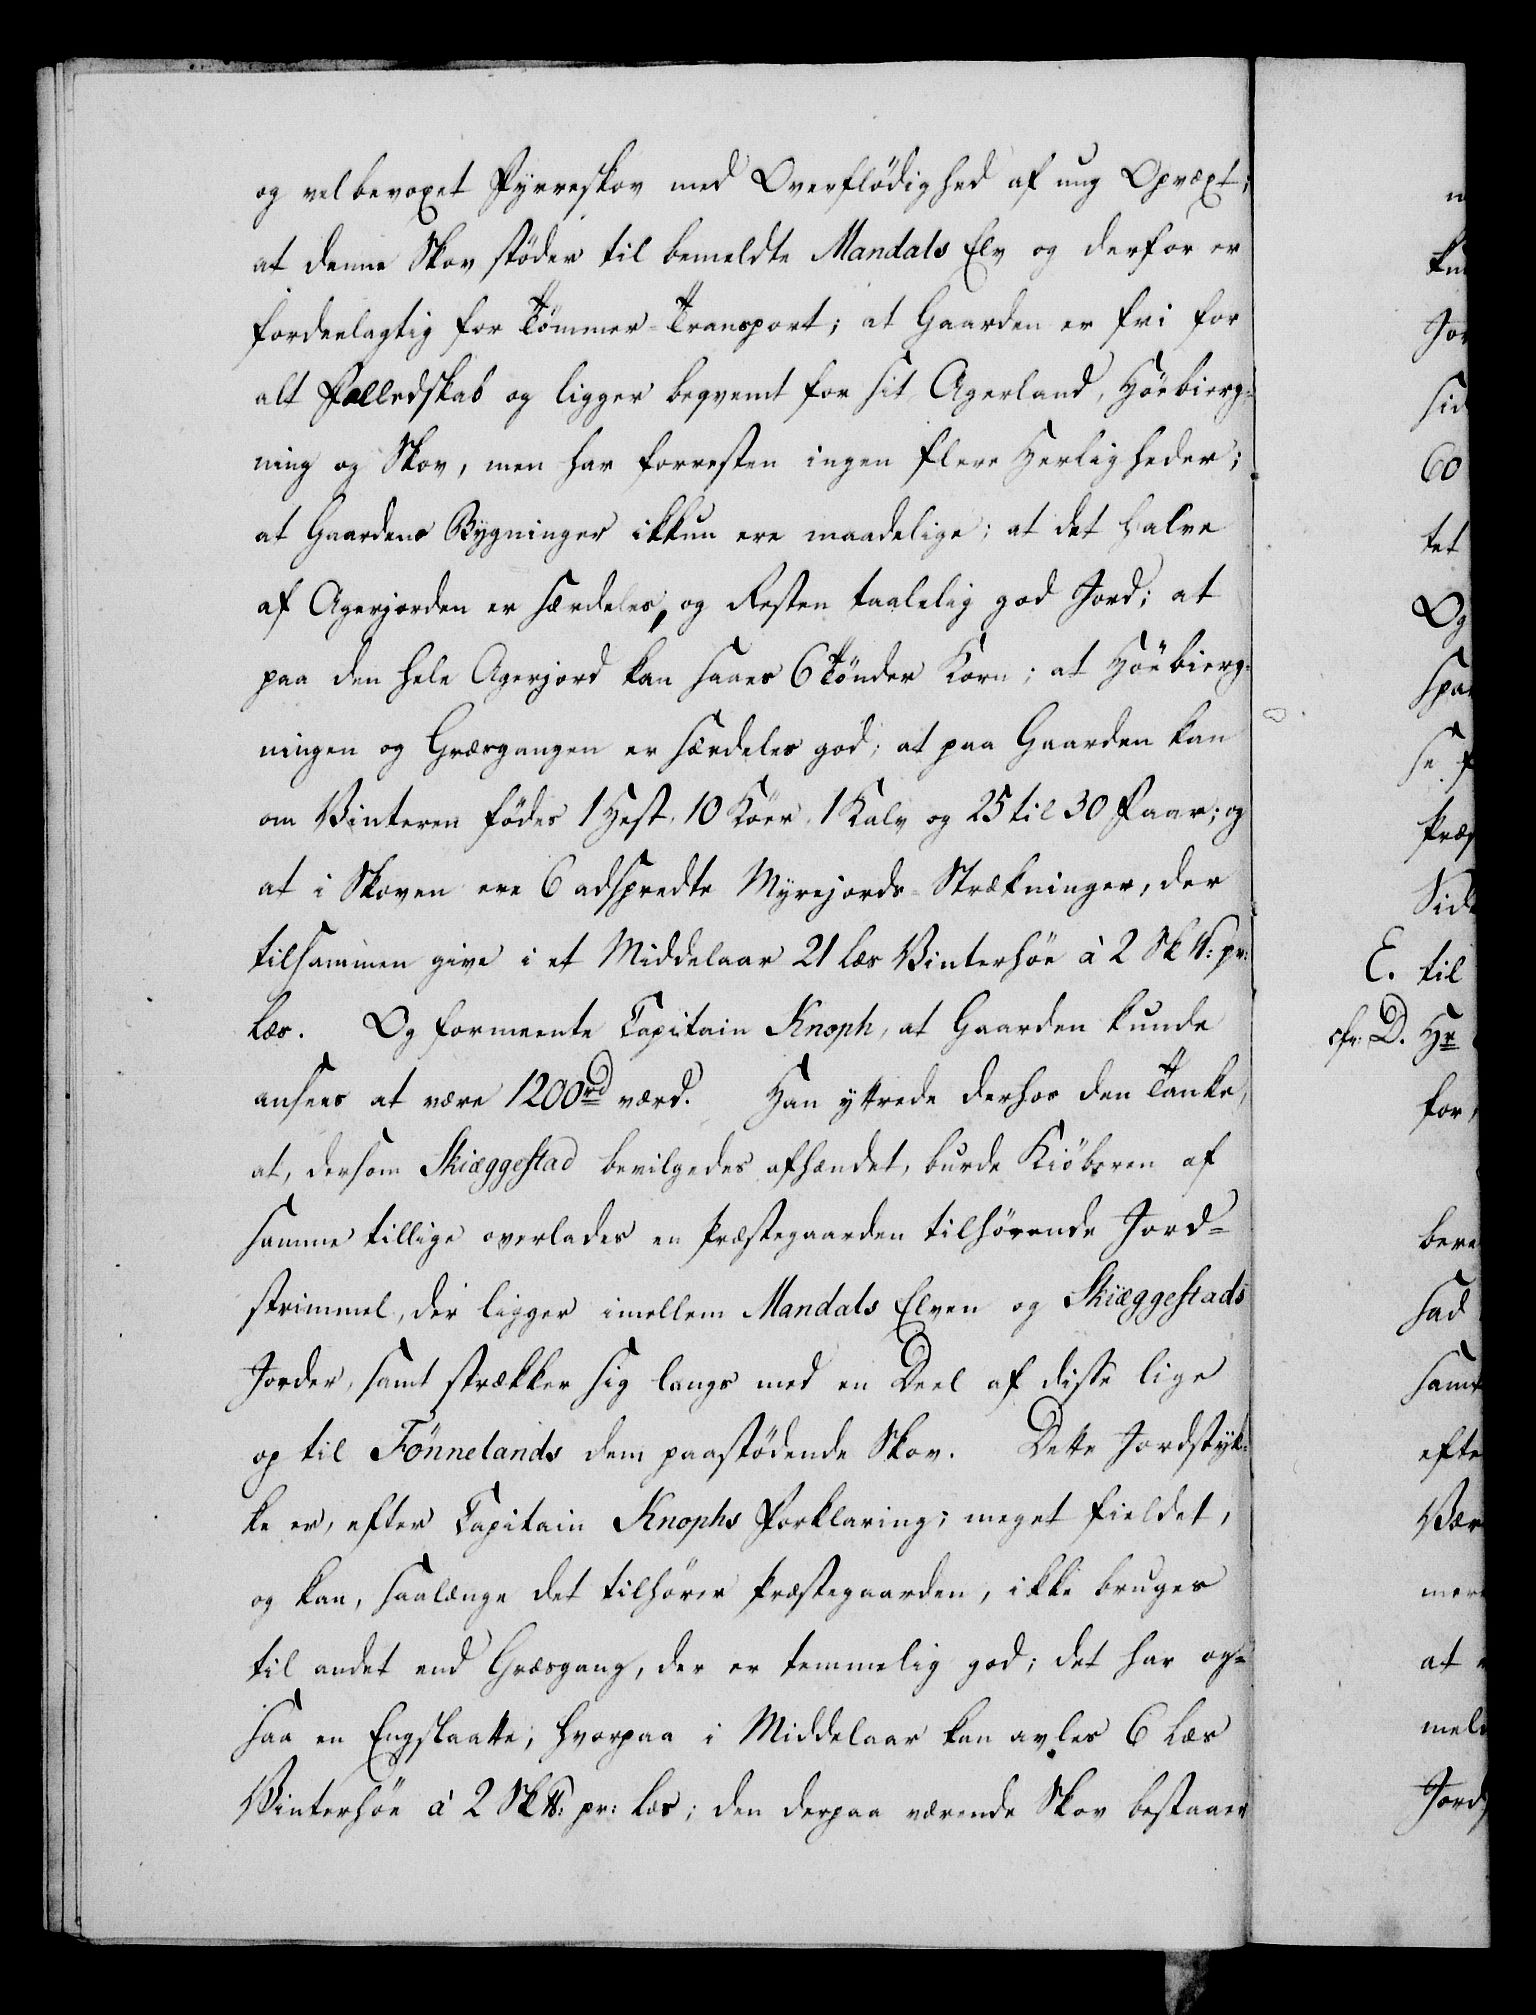 og velbevoxet Fyrreskov med Overflödighed af ung Opvæxt;
at denne Skov stöder til bemeldte Mandals Elv og derfor er
fordeelagtig for Tömmer-Transport; at Gaarden er fri for
alt Fælledskab og ligger beqvemt for sit Agerland, Höebierg-
ning og Skov, men har forresten ingen flere Herligheder;
at Gaardens Bygninger ikkun ere maadelige; at det halve
af Agerjorden er særdeles, og Resten taalelig god Jord; at
paa den hele Agerjord kan saaes 6 Tönder Korn; at Höebierg-
ningen og Græsgangen er særdeles god; at paa Gaarden kan
om Vinteren födes 1 Hest, 10 Köer, 1 Kalv og 25 til 30 Faar; og
at i Skoven ere 6 adspredte Myrejords-Strækninger, der
tilsammen give i et Middelaar 21 Læs Vinterhöe à 2 Sk ℔: pr:
Læs. Og formeente Capitain Knoph, at Gaarden kunde
ansees at være 1200 rd værd. Han yttrede derhos den Tanke,
at, dersom Skiæggestad bevilgedes afhændet, burde Kiöberen af
samme tillige overlades en Præstegaarden tilhörende Jord-
strimmel, der ligger imellem Mandals Elven og Skiæggestads
Jorder, samt strækker sig langs med en Deel af disse lige
op til Fönnelands dem paastödende Skov. Dette Jordstyk-
ke er, efter Capitain Knophs Forklaring; meget fieldet,
og kan, saalænge det tilhörer Præstegaarden, ikke bruges
til andet end Græsgang, der er temmelig god; det har og-
saa en Engslaatte, hvorpaa i Middelaar kan avles 6 Læs
Vinterhöe à 2 Sk ℔: pr: Læs; den derpaa værende Skov bestaaer
60
tet
Og
E. til
cfr: D. Hr
for,
sad
at